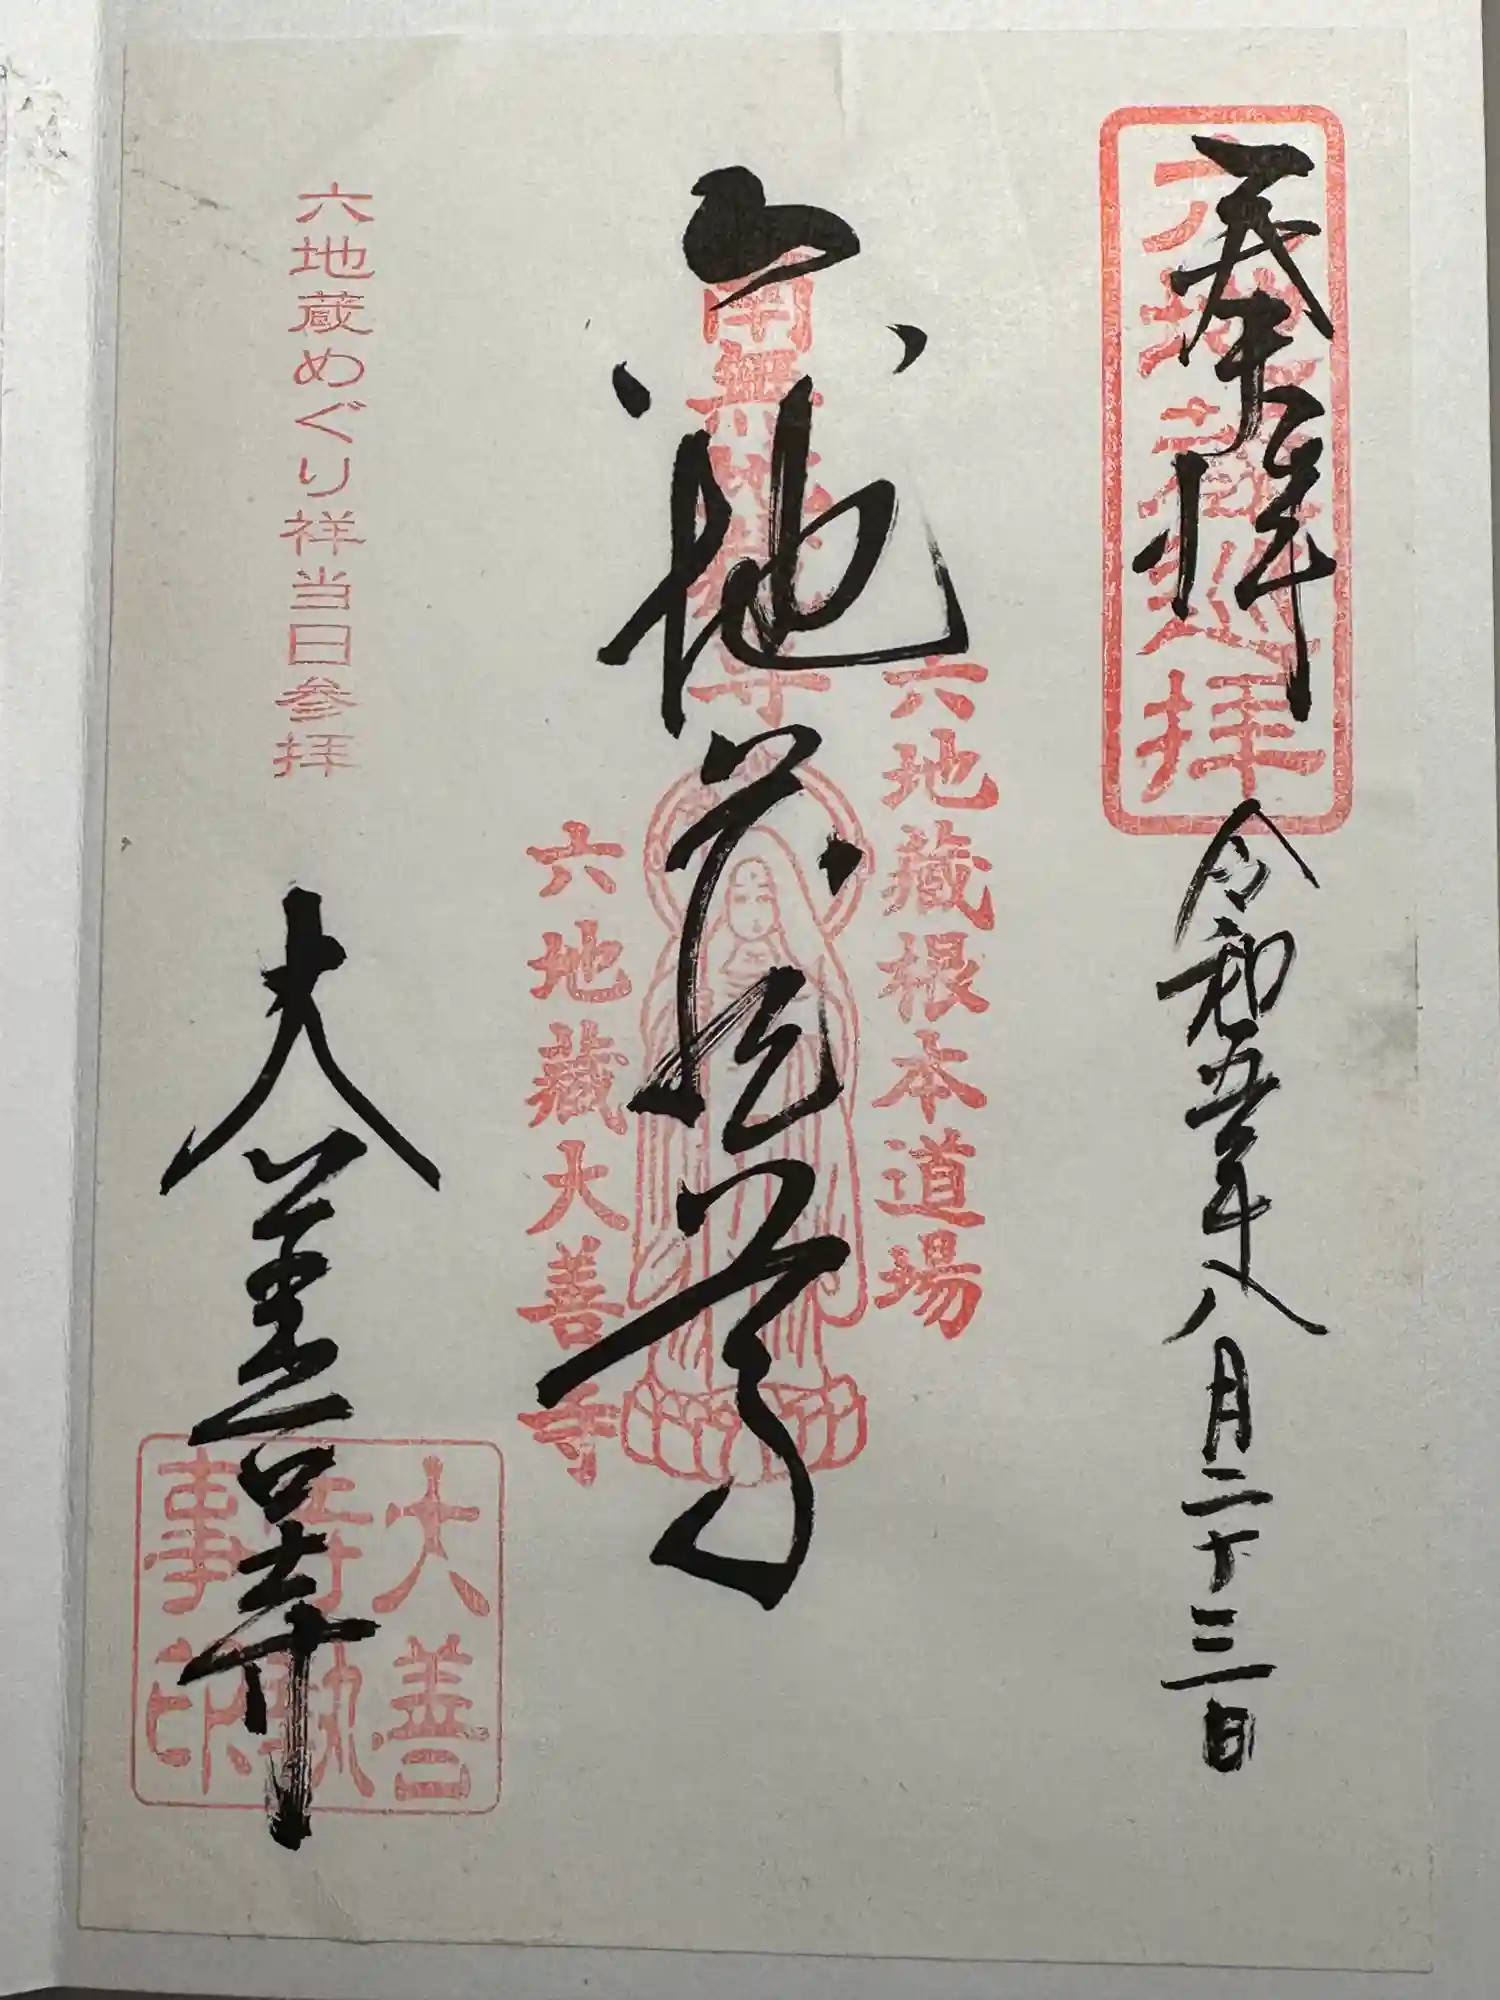 奉拝
六地蔵巡拝
令和五年八月二十三日
六地蔵尊
南無地蔵尊
六地蔵根本道場
六地蔵大善寺
六地蔵めぐり祥当日参拝
大善寺
大善
寺執
事印